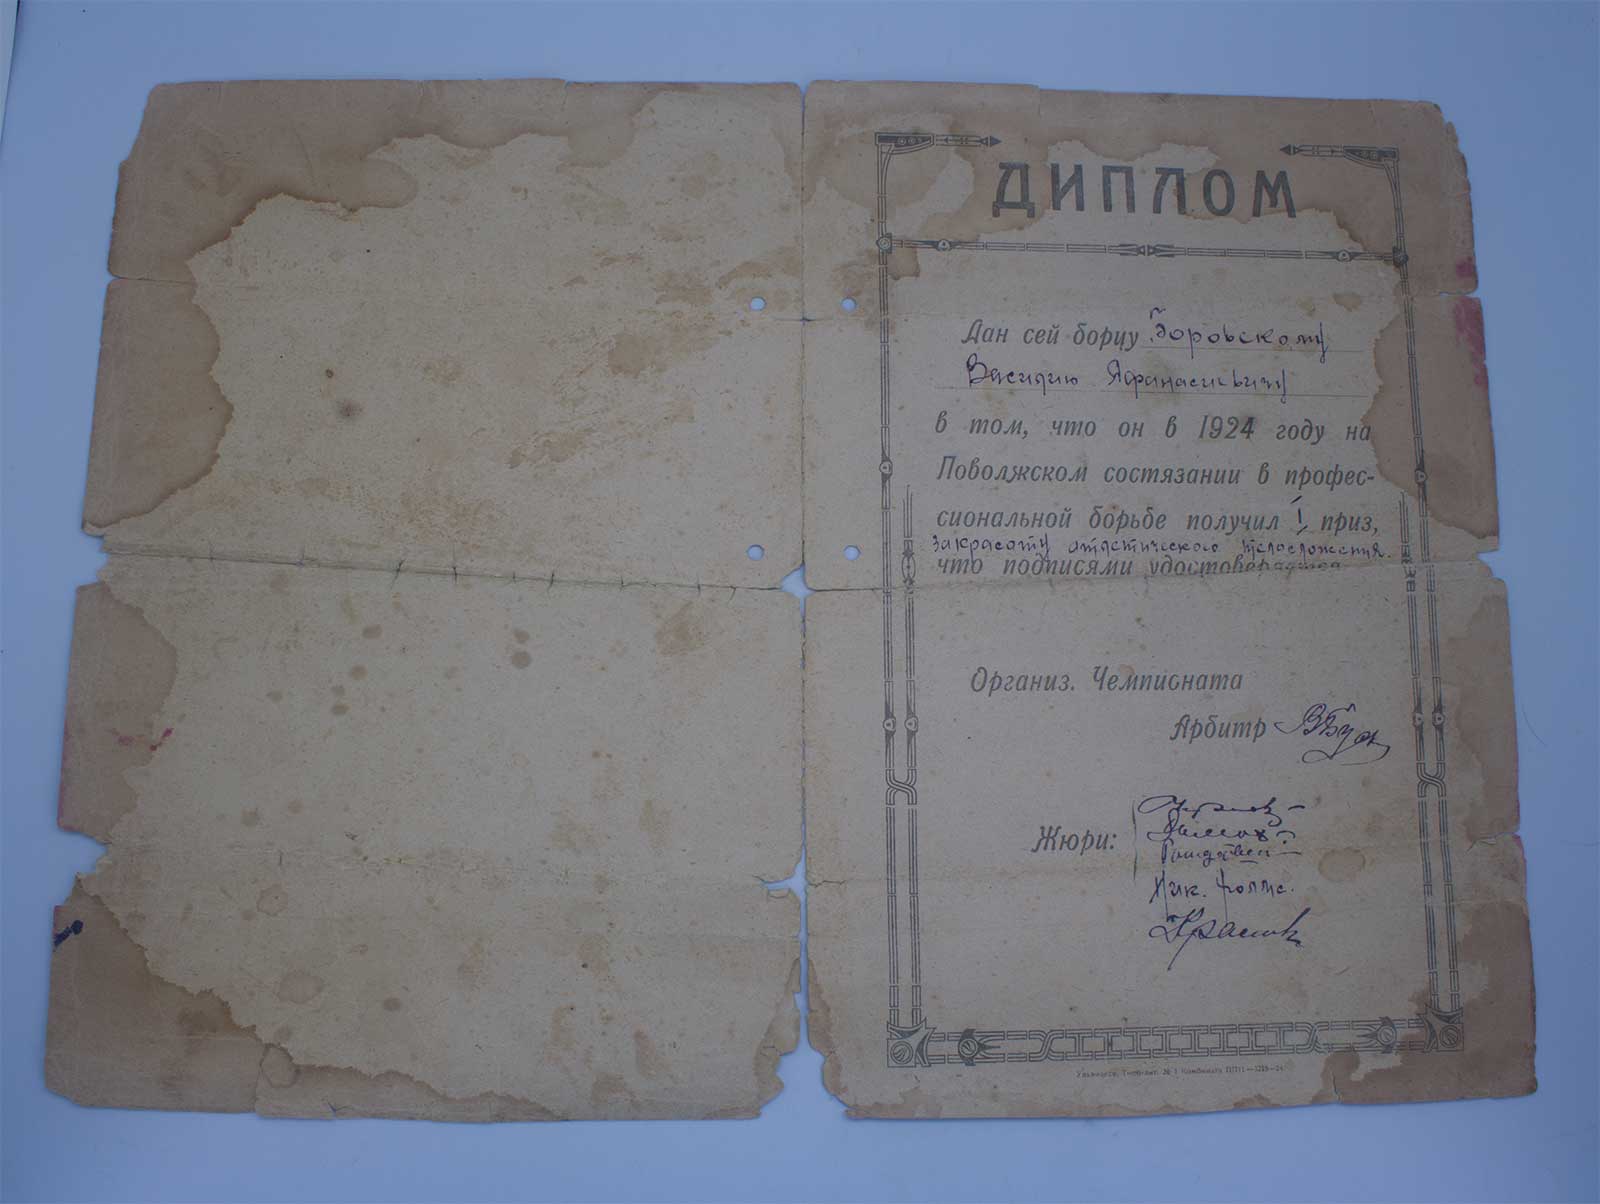 ДИПЛОМ
Дан сей борцу Боровскому
Василию Афанасиевичу
в том, что он в 1924 году на
Поволжском состязании в профес-
сиональной борьбе получил I приз,
за красоту атлетического телосложения.
что подписями удостоверяется
Организ. Чемпионата
Арбитр
Жюри:
Ник.